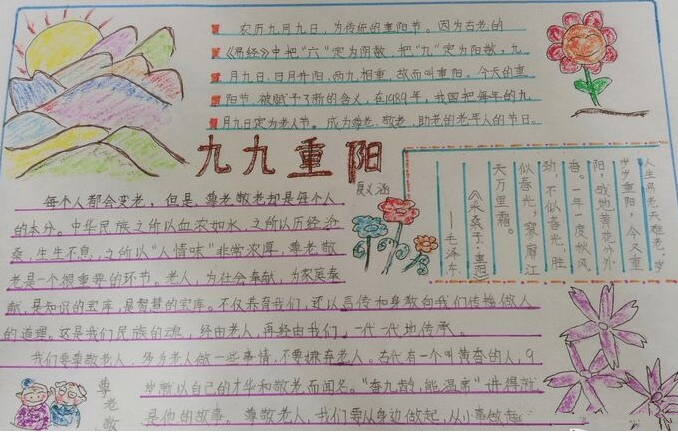 农历九月九日，为传统的重阳节。因为古老的
《易经》中把“六”定为阴数，把“九”定为阳数，九
月九日，日月并阳，两九相重，故而叫重阳。今天的重
阳节，被赋予了新的含义，在1989年，我国把每年的九
月九日定为老人节。成为尊老、敬老、助老的老年人的节日。
九九重阳
每个人都会变老，但是，尊老敬老却是每个人
的本分。中华民族之所以血浓如水，之所以历经沧
桑，生生不息，之所以“人情味”非常浓厚，尊老敬
老是一个很重要的环节。老人，为社会奉献，为家庭奉
献，是知识的宝库，是智慧的宝库。不仅养育我们，还以言传和身教向我们传播做人
的道理。这是我们民族的魂，经由老人，再经由我们，一代一代地传承。
我们要尊敬老人，多为老人做一些事情，不要嫌弃老人。古代有一个叫黄香的人，9
岁就以自己的才华和敬老而闻名。“香九龄，能温席”讲得就
是他的故事。尊敬老人，我们要从身边做起，从小事做起
人生易老天难老，岁
岁重阳，今又重
阳，战地黄花分外
香。一年一度秋风
劲，不似春光，胜
似春光，寥廓江
天万里霜。
《采桑子·重阳》
——毛泽东
尊老敬